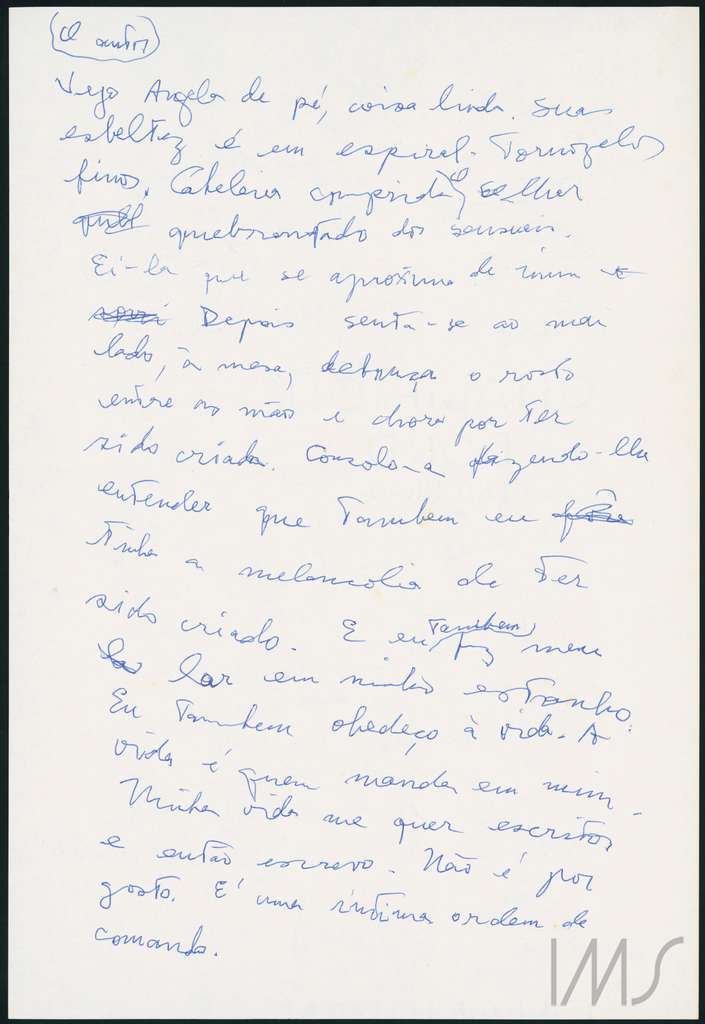 (O autor)
Vejo Angela de pé, coisa linda. Sua
esbeltez é em espiral. Tornozelos
finos. Cabeleira comprida, e olhar
quebrantado dos sensuais.
Ei-la que se aproxima de mim e
Depois senta-se ao meu
lado, à mesa, debruça o rosto
entre as mãos e chora por ter
sido criada. Consolo-a fazendo-lhe
entender que também eu
tinha a melancolia de ter
sido criado. E eu também fiz meu
lar em ninho estranho.
Eu também obedeço à vida. A
vida é quem manda em mim.
Minha vida me quer escritor
e então escrevo. Não é por
gosto. É uma íntima ordem de
comando.
IMS